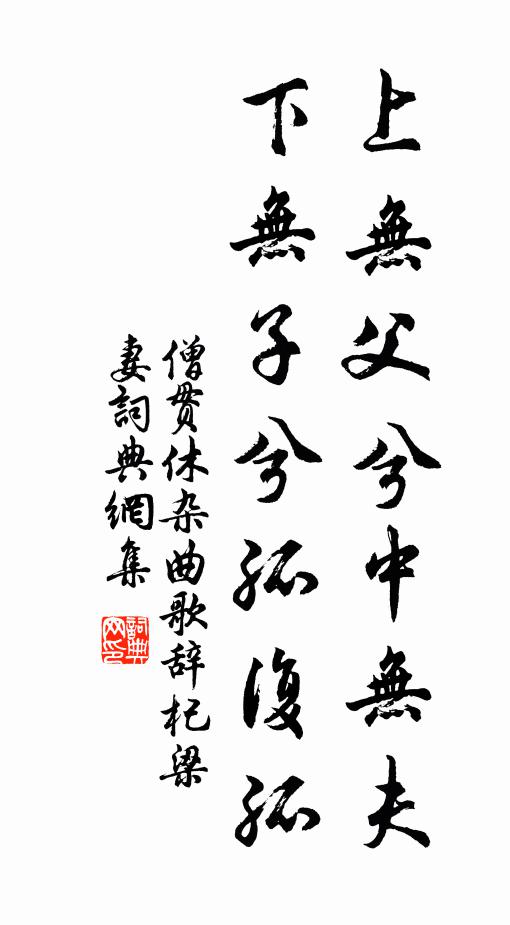 上無父兮中無夫
下無子兮孤復孤
僧貫休杂曲歌辞杞梁
妻詞典網集
詞典
网印